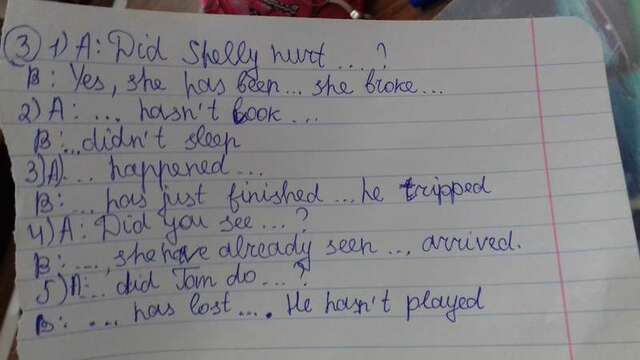 ③ 1) A: Did Shelly hurt ...?
B: Yes, she has been... she broke...
2) A: ... hasn't look ...
B: ...didn't sleep
3) A: ... happened ...
B: ... has just finished ... he tripped
4) A: Did you see ...?
B: ..., she have already seen ..., arrived.
5) A: did Tom do ...?
B: ... has lost .... He hasn't played